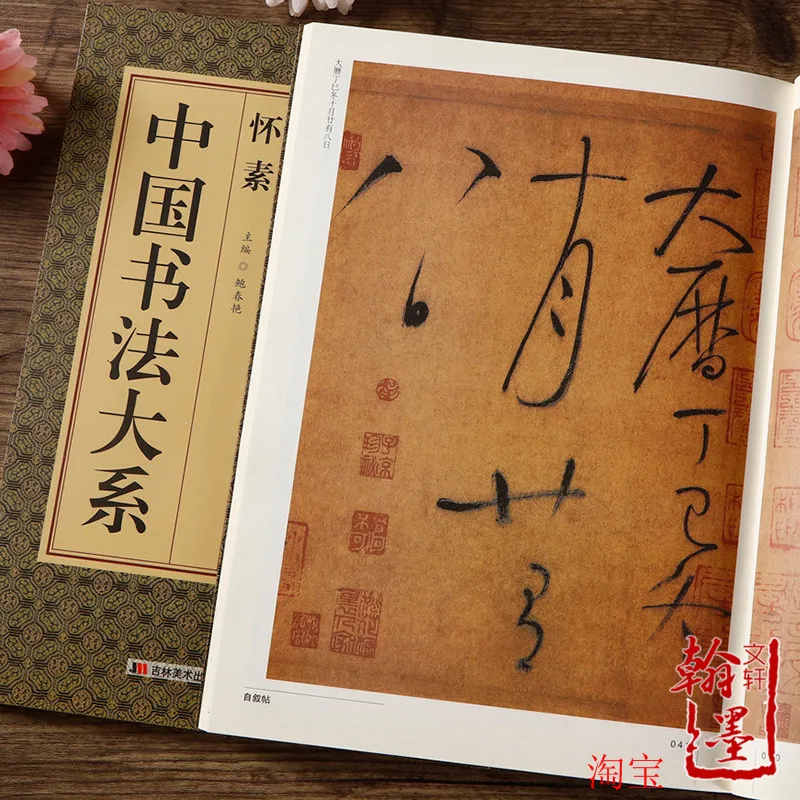 怀素
中国书法大系
主编◎鲍春艳
吉林美术出
大曆丁巳冬十月廿有八日
大曆丁巳冬
十月廿有
八日
自叙帖
04
文轩
翰墨
淘宝